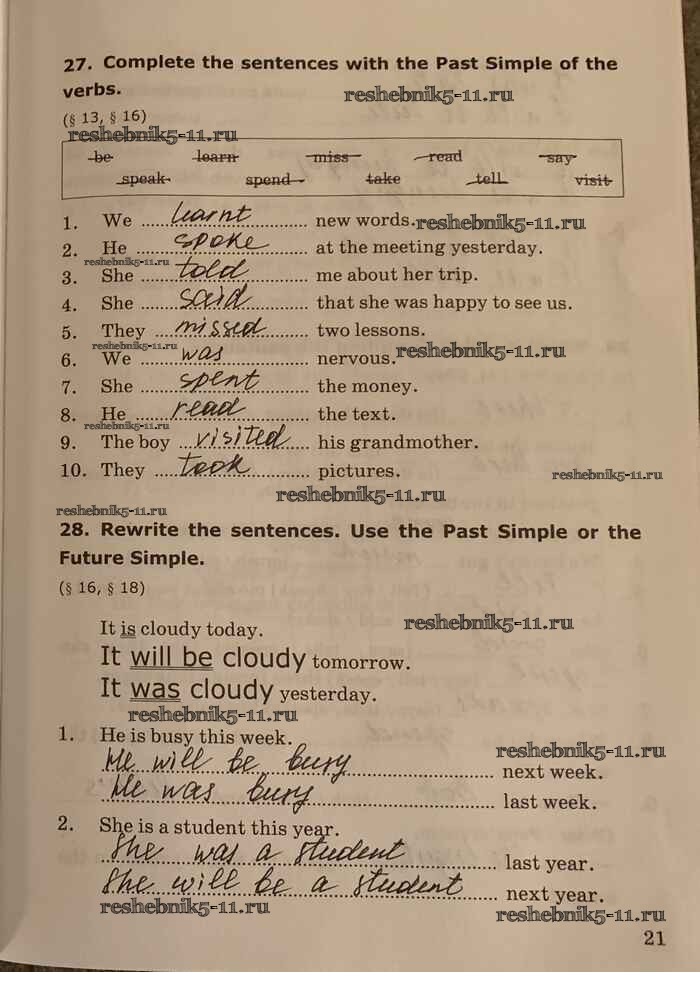 27. Complete the sentences with the Past Simple of the
verbs.
reshebnik5-11.ru
(§ 13, § 16)
reshebnik5-11.ru
be learn miss read say
speak spend take tell visit
1. We learnt new words. reshebnik5-11.ru
2. He spoke at the meeting yesterday.
reshebnik5-11.ru
3. She told me about her trip.
4. She said that she was happy to see us.
5. They missed two lessons.
reshebnik5-11.ru
6. We was nervous. reshebnik5-11.ru
7. She spent the money.
8. He read the text.
reshebnik5-11.ru
9. The boy visited his grandmother.
10. They took pictures.
reshebnik5-11.ru
reshebnik5-11.ru
reshebnik5-11.ru
28. Rewrite the sentences. Use the Past Simple or the
Future Simple.
(§ 16, § 18)
It is cloudy today.
reshebnik5-11.ru
It will be cloudy tomorrow.
It was cloudy yesterday.
reshebnik5-11.ru
1. He is busy this week.
reshebnik5-11.ru
He will be busy next week.
He was busy last week.
2. She is a student this year.
She was a student last year.
She will be a student next year.
reshebnik5-11.ru
reshebnik5-11.ru
21